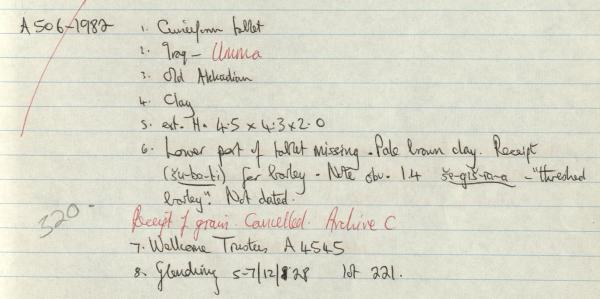 A 506-1982 1. Cuneiform tablet
2. Iraq - Umma
3. Old Akkadian
4. Clay
5. ext. H. 4.5 x 4.3 x 2.0
6. Lower part of tablet missing. Pale brown clay. Receipt
(šu-ba-ti) for barley. Note obv. l.4 še-giš-ra-a - "threshed
barley". Not dated.
320-
Receipt of grain. Cancelled. Archive C
7. Wellcome Trustees A 4545
8. Glendining 5-7/12/28 lot 221.